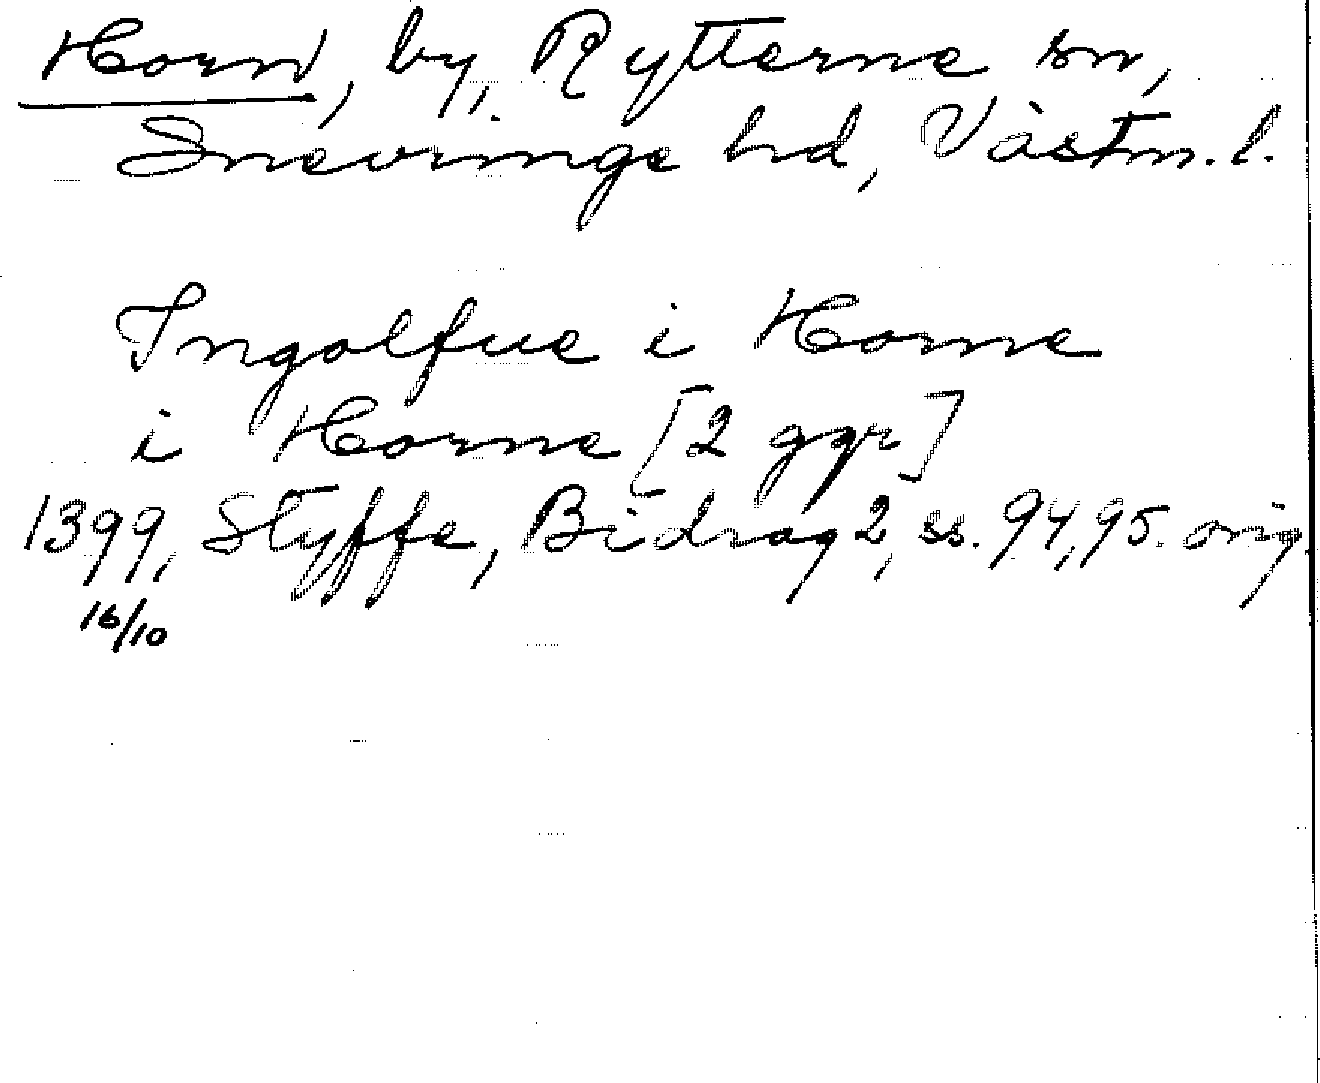 Horn, by, Rytterne sn,
Snevringe hd, Västm. l.
Ingolfue i Horne
i Horne [2 ggr]
1399, Styffe, Bidrag 2, ss. 94, 95. orig.
16/10